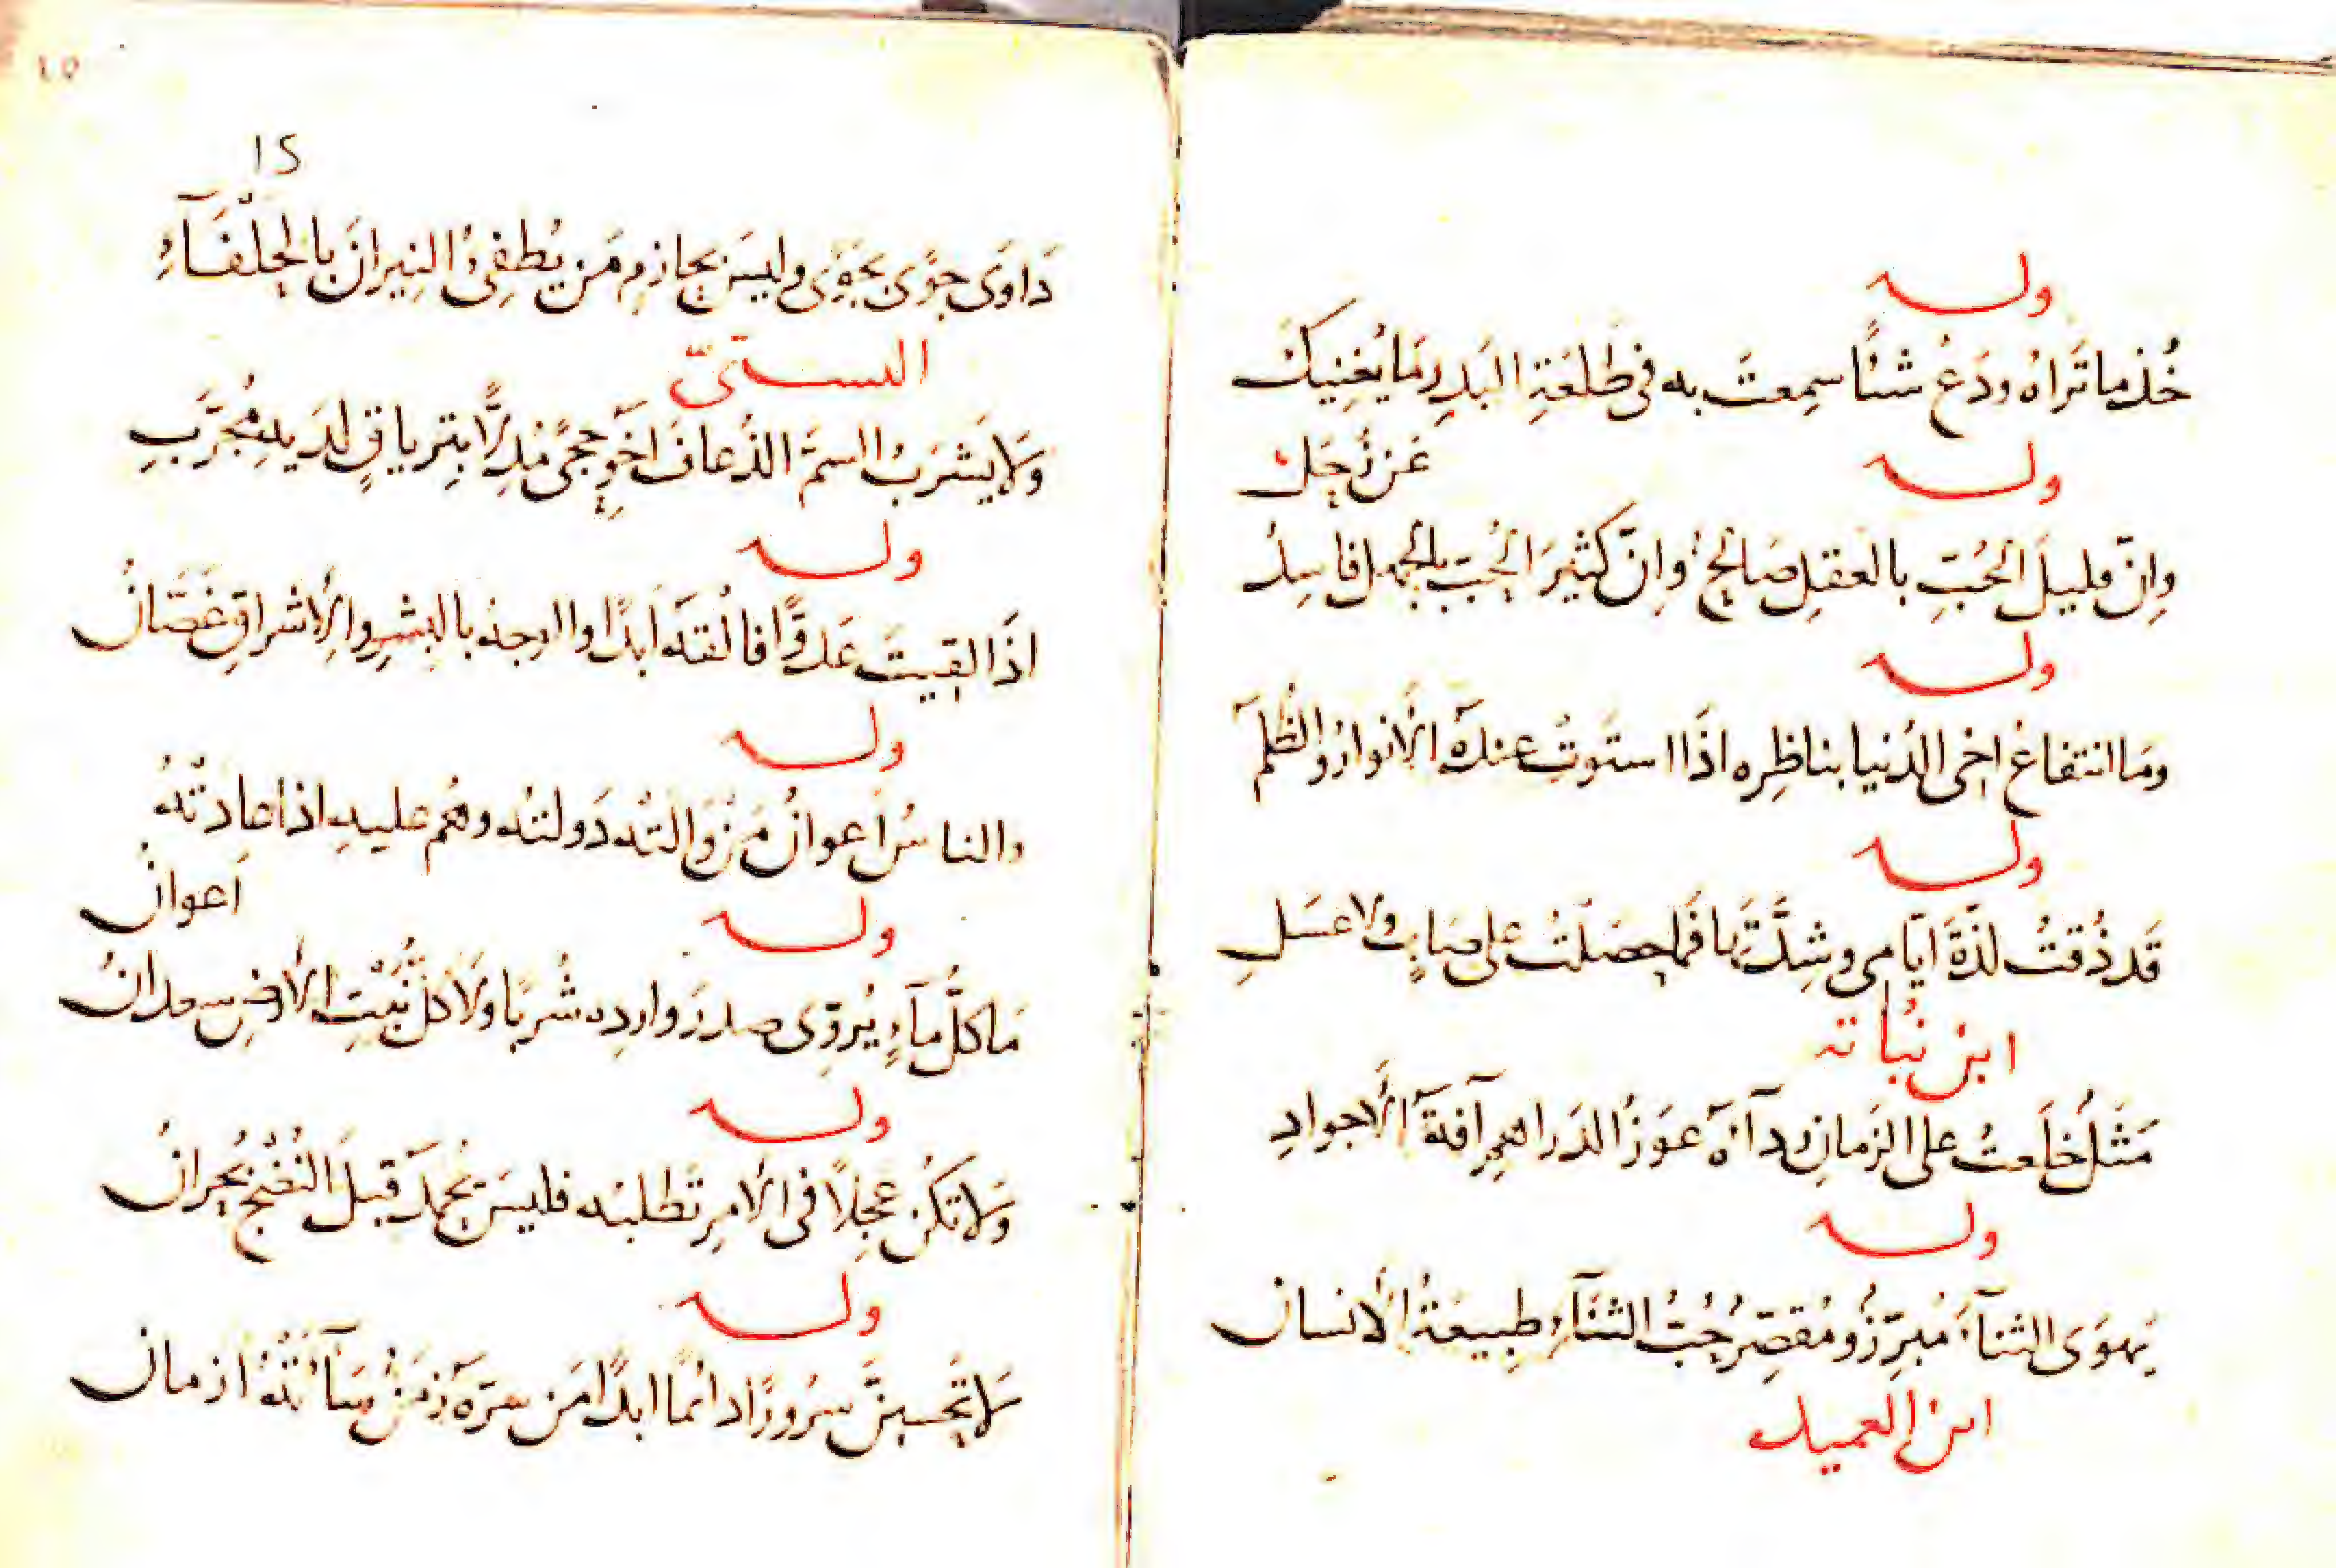 وله
خُذ ما تَراهُ ودَعْ شئًا سمِعتَ به فى طَلعَةِ البَدرِ مَا يُغنِيكَ
عَن زُحَل
وله
وانّ قليلَ الحُبّ بالعقلِ صَالحٌ وانّ كثيرَ الحُبّ بالجهل فاسِدُ
وله
ومَا انتفاعُ اخى الدُنيا بناظِره اذَا استَوتْ عندَهُ الأنوارُ والظُلَمُ
وله
قَد ذُقتُ لذّةَ ايّامى وشِدَّتَها فَما حصَلتُ على صَابٍ ولا عسَلِ
ابن نُباته
مَثَلٌ خلَعتُ على الزمانِ ردآءَهُ عوَزُ الدَراهمِ آفةُ الأجوادِ
وله
يَهوَى الثنآءَ مُبرّزٌ ومُقصّرٌ حُبُّ الثنَآءِ طبيعَةُ الأنسان
ابن العميد
١٥
15
دَاوَى جوًى بجَوًى وليسَ بحازمٍ مَن يُطفِئُ النِيرانَ بالحَلْفَآءِ
البستىّ
وَلا يَشرَبُ السمَّ الذُعافَ اخو حجىً مُدِلًّا بتِرياقٍ لدَيهِ مُجَرَّبِ
وله
اذَا لقِيتَ عَدوًّا فالْقَه ابدًا والوجهُ بالبِشرِ والأشراقِ غَصّانُ
وله
والناسُ اَعوانُ مَن وَالَتْهُ دَولتُه وهُم عليهِ اذا عادَتْهُ
اَعوانُ
وله
مَا كلُّ مآءٍ يُروّى صدرَ واردِه شُربًا ولَا كلُّ نَبْتِ الأرضِ سعدانُ
وله
وَلا تكُن عَجِلًا فى الأمرِ تَطلبُه فليسَ يُحمَدُ قبلَ النُضْجِ بُحرانُ
وله
لَا تَحسِبنَّ سرُورًا دائمًا ابدًا مَن سرّهُ زمَنٌ سَآءَتْهُ ازمان